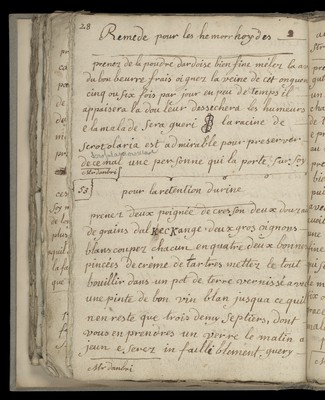 28
Remede pour les hemorrhoydes
prenez de la poudre dardoise bien fine mélez la avec
du bon beurre frais oignez la veine de cet onguen
cinq ou six fois par jour en peu de temps il
appaisera la douleur dessechera les humeurs
e la malade sera gueri la racine de
scrozolaria est admirable pour preserver
de ce mal une personne qui la porte sur soy
Mr daubri
53
pour la retention durine
prenez deux poignée de cresson deux douzaine
de grains dal KecKange deux gros oignons
blans coupez chacun en quatre deux bonnes
pincées de crême de tartres mettez le tout
bouillir dans un pot de terre vernissé avec
une pinte de bon vin blan jusqua ce quil
nen reste que trois demy septiers, dont
vous en prendres un verre le matin a
jeun e serez in failliblement, guery
Mr daubri